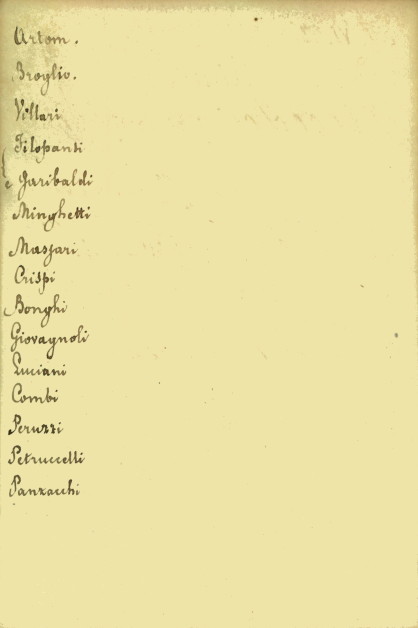 Artom.
Broglio.
Villari
Filopanti
e Garibaldi
Minghetti
Massari
Crispi
Bonghi
Giovagnoli
Luciani
Combi
Peruzzi
Petruccelli
Panzacchi